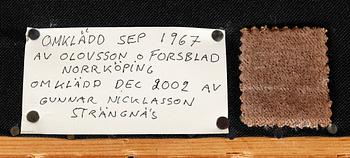 OMKLÄDD SEP 1967
AV OLOVSSON O FORSBLAD
NORRKÖPING
OMKLÄDD DEC 2002 AV
GUNNAR NICKLASSON
STRÄNGNÄS